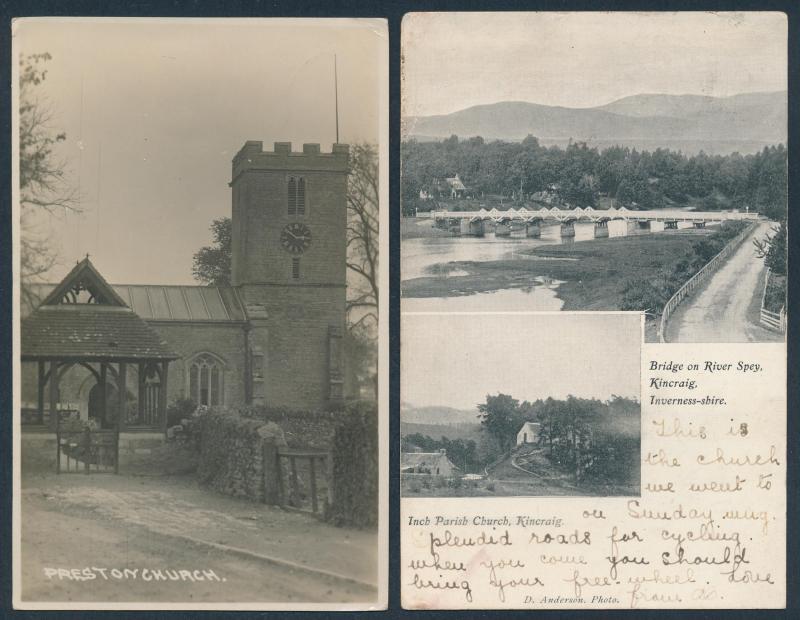 PRESTON CHURCH.
Bridge on River Spey,
Kincraig,
Inverness-shire.
Inch Parish Church, Kincraig.
This is
the church
we went to
on Sunday mng.
Splendid roads for cycling.
when you come you should
bring your free wheel. Love
from
D. Anderson, Photo.